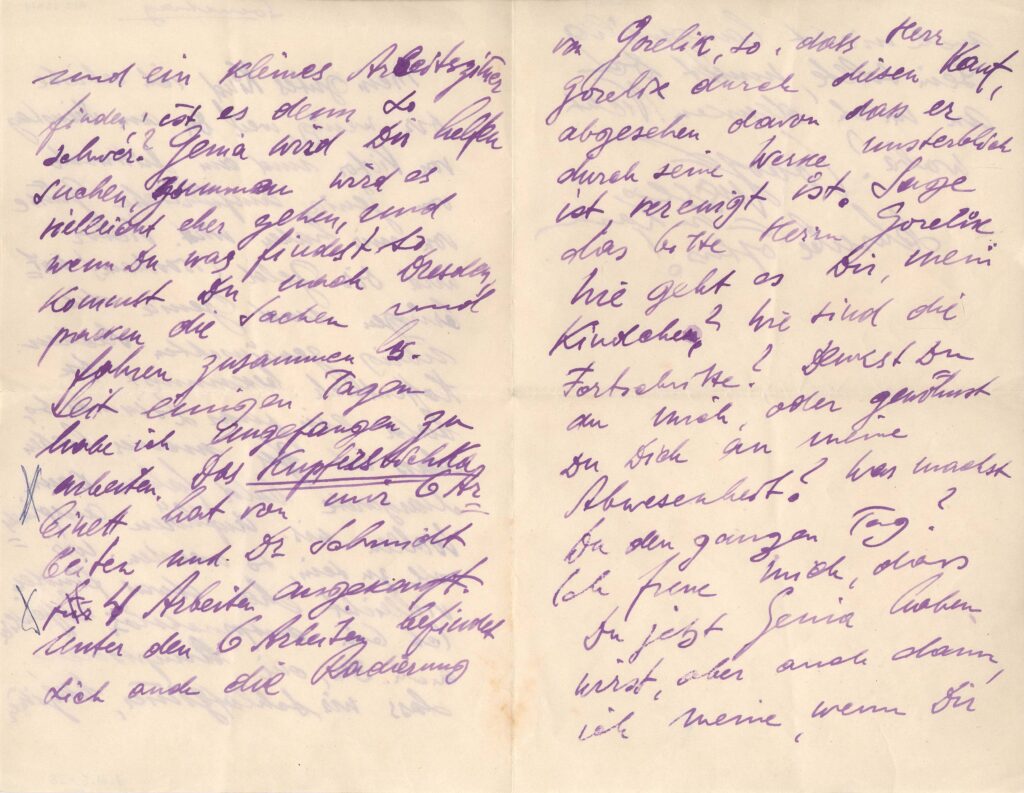 und ein kleines Arbeitszimer
finden, ist es denn so
schwer? Genia wird Dir helfen
suchen, zusammen wird es
vielleicht eher gehen, und
wenn Du was findest so
kommst Du nach Dresden,
packen die Sachen und
fahren zusammen
Seit einigen Tagen
habe ich angefangen zu
arbeiten. Das Kupferstichka-
binett hat von mir 6 Ar-
beiten und Dr Schmidt
4 Arbeiten angekauft.
Unter den 6 Arbeiten befindet
sich auch die Radierung
von Gorelik, so, dass Herr
Gorelik durch diesen Kauf,
abgesehen davon dass er
durch seine Werke unsterblich
ist, verewigt ist. Sage
das bitte Herrn Gorelik
Wie geht es Dir, mein
Kindchen? Wie sind die
Fortschritte? Denkst Du
an mich, oder gewöhnst
Du Dich an meine
Abwesenheit? Was machst
Du den ganzen Tag?
Ich freue mich, dass
Du jetzt Genia haben
wirst, aber auch dann,
ich meine, wenn Du